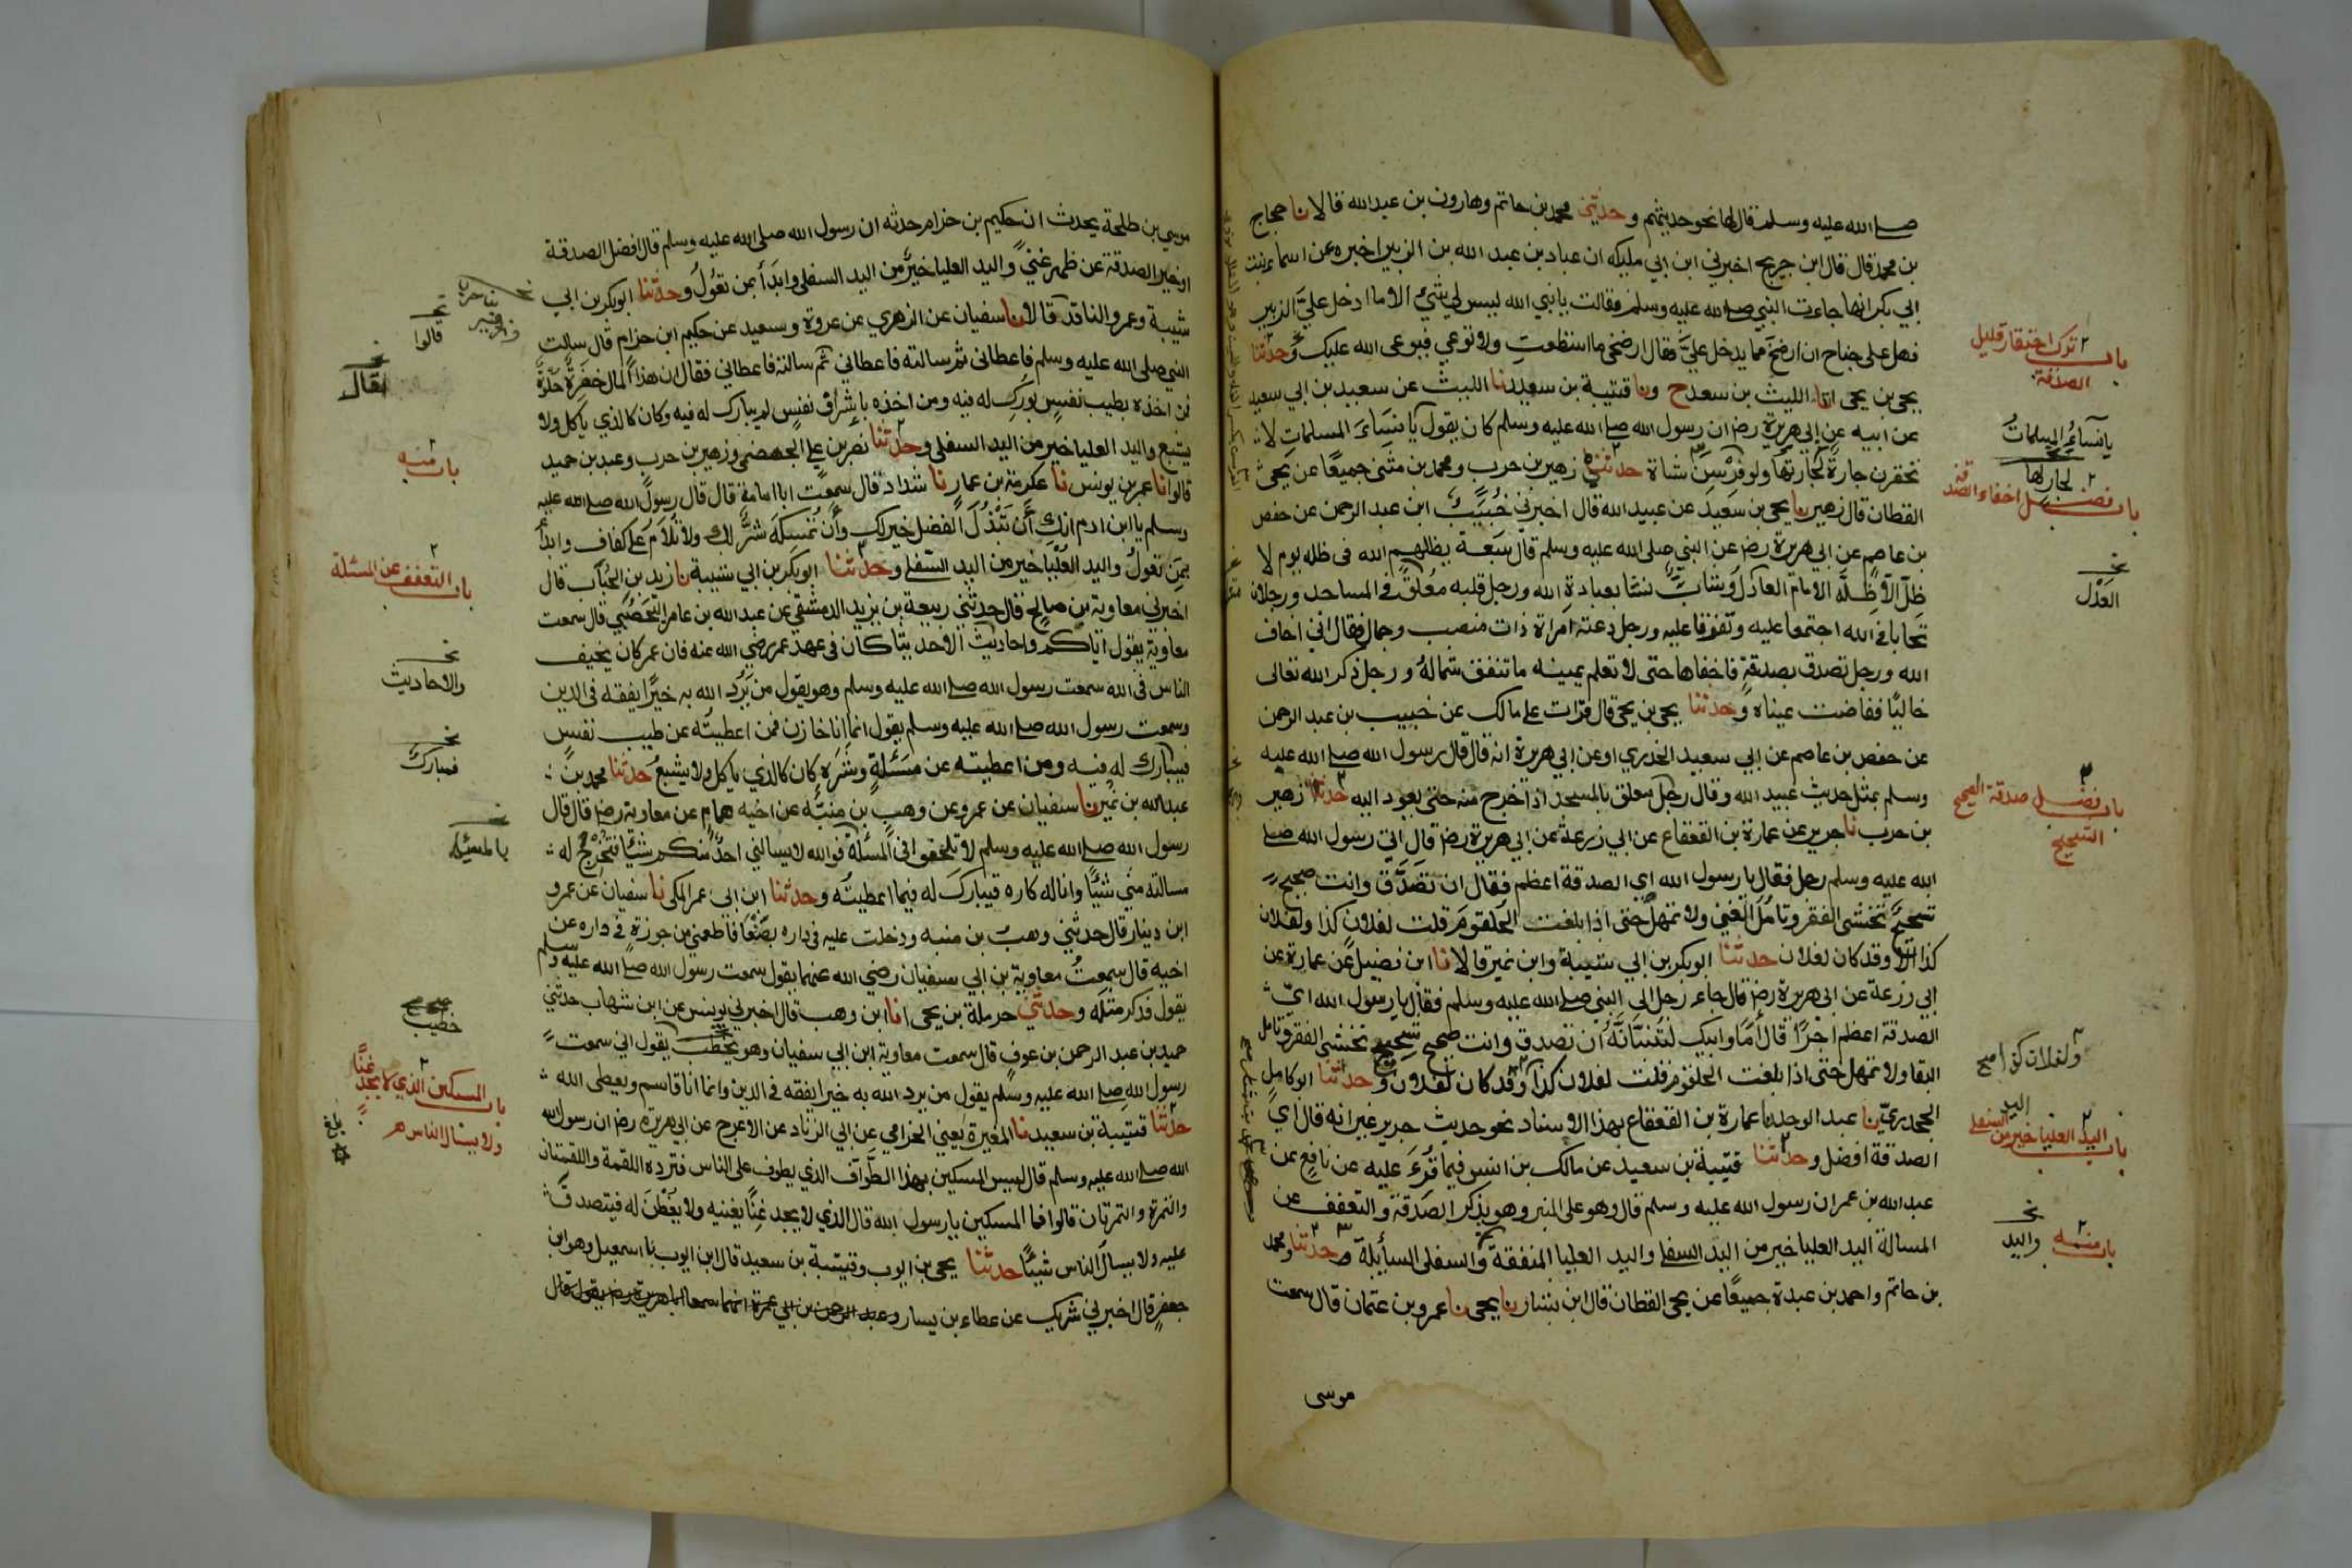 صلى الله عليه وسلم قال لها نحو حديثهم وحدثني محمد بن حاتم وهارون بن عبد الله قالا نا حجاج
بن محمد قال قال ابن جريج اخبرني ابن ابي مليكه ان عباد بن عبد الله بن الزبير اخبره عن اسماء بنت
ابي بكر انها جاءت النبي صلى الله عليه وسلم فقالت يا نبي الله ليس لي شئ الا ما ادخل عليّ الزبير
فهل على جناح ان ارضخ مما يدخل عليّ فقال ارضخي ما استطعتِ ولا توعي فيوعي الله عليك وحدثنا
يحيى بن يحيى انا الليث بن سعد ح ونا قتيبة بن سعيد نا الليث عن سعيد بن ابي سعيد
عن ابيه عن ابي هريرة رض ان رسول الله صلى الله عليه وسلم كان يقول يا نساءَ المسلمات لا
تحقرن جارةٌ لجارتها ولو فِرْسِنَ شاة حدثني زهير بن حرب ومحمد بن مثنى جميعًا عن يحيى
القطان قال زهير نا يحيى بن سَعيد عن عبيد الله قال اخبرني خُبَيبُ ابن عبد الرحمن عن حفص
بن عاصم عن ابي هريرة رض عن النبي صلى الله عليه وسلم قال سَبعة يظلهم الله فى ظله يوم لا
ظلّ الّا ظلّه الامام العادل وشابٌّ نشا بعبادة الله ورجل قلبه معُلقٌ في المساجد ورجلان
تحابا في الله اجتمعا عليه وتفرقا عليه ورجل دعته امراة ذات منصب وجمال فقال اني اخاف
الله ورجل تصدق بصدقةٍ فاخفاها حتى لا تعلم يمينه ما تنفق شماله ورجل ذكر الله تعالى
خاليًا ففاضت عيناه وحدثنا يحيى بن يحيى قال قرات على مالك عن خبيب بن عبد الرحمن
عن حفص بن عاصم عن ابي سعيد الخدري او عن ابي هريرة انه قال قال رسول الله صلى الله عليه
وسلم بمثل حديث عبيد الله وقال رجل معلق بالمسجد اذا خرج منه حتى يعود اليه حدثنا زهير
بن حرب نا جرير عن عمارة بن القعقاع عن ابي زرعة عن ابي هريرة رض قال اتى رسول الله صلى
الله عليه وسلم رجل فقال يا رسول الله اي الصدقة اعظم فقال ان تصَدّق وانت صحيح
شحيح تخشى الفقر وتامُل الغنى ولا تمهل حتى اذا بلغت الحلقوم قلت لفلان كذا ولفلان
كذا الا وقد كان لفلان حدثنا ابو بكر بن ابي شيبة وابن نمير قالا نا ابن فضيل عن عمارة عن
ابي زرعة عن ابي هريرة رض قال جاء رجل الى النبي صلى الله عليه وسلم فقال يا رسول الله ايّ
الصدقة اعظم اجْرًا قال اَمَا وابيك لتُنَبّاَنّهُ اَن تصدق وانت صحيح شحيح تخشى الفقر وتامل
البقا ولا تمهل حتى اذا بلغت الحلقوم قلت لفلان كذا وقد كان لفلان وحدثنا ابو كامل
الجحدريّ نا عبد الوحد نا عمارة بن القعقاع بهذا الاسناد نحو حديث جرير غير انه قال اي
الصدقة افضل وحدثنا قتيبة بن سعيد عن مالك بن انس فيما قُرءَ عليه عن نافع عن
عبد الله بن عمر ان رسول الله عليه وسلم قال وهو على المنبر وهو يذكر الصدقة والتعفف عن
المسالة اليد العليا خير من اليد السفلى واليد العليا المنفقة والسفلى السأيلة حدثنا ومحمد
بن حاتم واحمد بن عبدة جميعًا عن يحيى القطان قال ابن بشار نا يحيى نا عمرو بن عثمان قال سمعت
موسى
باب ترك احتقار قليل
الصدقة
يا نساءُ المسلماتُ
لجارها
باب فضل اخفاء الصدقة
العَدْل
باب فضل صدقة الصحيح
الشحيح
ولفلان كذا صح
باب اليد العليا خير من اليد السفلى
باب منه
واليد
موسي بن طلحة يحدث ان حكيم بن حزام حدثه ان رسول الله صلى الله عليه وسلم قال افضل الصدقة
او خير الصدقة عن ظهر غنىً واليد العليا خيرٌ من اليد السفلى وابدَأ بمن تعُولُ وحدثنا ابو بكر بن ابي
شيبة وعمرو الناقد قالا نا سفيان عن الزهري عن عروة وسعيد عن حكيم ابن حزام قال سالت
النبي صلى الله عليه وسلم فاعطانى ثم سالته فاعطاني ثم سالته فاعطاني فقال ان هذا المال خضِرةٌ حلوةٌ
فمن اخذه بطيب نفسٍ بُورِكَ له فيه ومن اخذه باشراف نفسٍ لم يبارك له فيه وكان كالذي ياكل ولا
يشبع واليد العليا خير من اليد السفلى وحدثنا نصر بن علي الجهضمي وزهير بن حرب وعبد بن حميد
قالوا نا عمر بن يونس نا عكرمة بن عمار نا شداد قال سمعت ابا امامة قال قال رسول الله صلى الله عليه
وسلم يا ابن ادم انك اَن تَبْذُلَ الفضل خير لك وأن تُمسِكَهُ شرٌّ لك ولا تُلَامُ على كفاف وابدأ
بمن تعُولُ واليد العُلْيَا خير من اليد السّفلى وحدثنا ابو بكر بن ابي شيبة نا زيد بن الحُبَاب قال
اخبرني معاوية بن صالح قال حدثني ربيعة بن يزيد الدمشقي عن عبد الله بن عامر اليَحصُبَي قال سمعت
معاوية يقول ايّاكم واحاديث الا حديثا كان فى عهد عمر رضي الله عنه فان عمر كان يخيف
الناس في الله سمعت رسول الله صلى الله عليه وسلم وهو يقول من يُرِد الله به خيرًا يفقه فى الدين
وسمعت رسول الله صلى الله عليه وسلم يقول انما انا خازن فمن اعطيتُه عن طيب نفسٍ
فيبارك له فيه ومن اعطيته عن مسَئلةٍ وشَرَهٍ كان كالذي ياكل ولا يشبعُ حدثنا محمد بن
عبد الله بن نُمَير نا سفيان عن عمرو عن وهب بن منبّه عن اخيه همام عن معاوية رض قال قال
رسول الله صلى الله عليه وسلم لا تلحفو افي المسئلة فوالله لا يسالني احدٌ منكم شيًا فتُخْرِجُ له
مسالته مني شيئًا وانا له كاره فيبارك له فيما اعطيتُه وحدثنا ابن ابي عمر المكي نا سفيان عن عمرو
ابن دينار قال حدثني وهب بن منبه ودخلت عليه فى داره بصَنْعَا فاطعمني من جوزةٍ في داره عن
اخيه قال سمعتُ معاوية بن ابي سفيان رضي الله عنهما يقول سمعت رسول الله صلى الله عليه وسلم
يقول فذكر مثله وحدثني حرملة بن يحيى انا ابن وهب قال اخبرني يونس عن ابن شهاب حدثني
حميد بن عبد الرحمن بن عوفٍ قال سمعت معاوية ابن ابي سفيان وهو يخطب يقول اني سمعت
رسول الله صلى الله عليه وسلم يقول من يرد الله به خيرا يفقه فى الدين وانما انا قاسم ويعطى الله
حدثنا قتيبة بن سعيد نا المغيرة يعني الحزامي عن ابي الزناد عن الاعرج عن ابي هريرة رض ان رسول الله
الله صلى الله عليه وسلم قال ليس المسكين بهذا الطوّاف الذي يطوف على الناس فترده اللقمة واللقمتان
والتمرة والتمرتان قالوا فما المسكين يا رسول الله قال الذي لا يجد غِنًا يغنيه ولا يُفطَنَ له فيتصدقَ
عليه ولا يسال الناس شيئًا حدثنا يحيى بن ايوب وقتيبة بن سعيد قال ابن ايوب نا اسمعيل وهو ابن
جعفرٍ قال اخبرني شريك عن عطاء بن يسار وعبد الرحمن بن ابي عمرة انهما سمعا ابا هريرة رض يقول قال
قالوا
فقال
باب منه
باب التعفف عن المسئلة
والاحاديث
فمبارك
بالمسئلة
خطيب
باب المسكين الذي لا يجد غنًا
ولا يسال الناس
بلغ